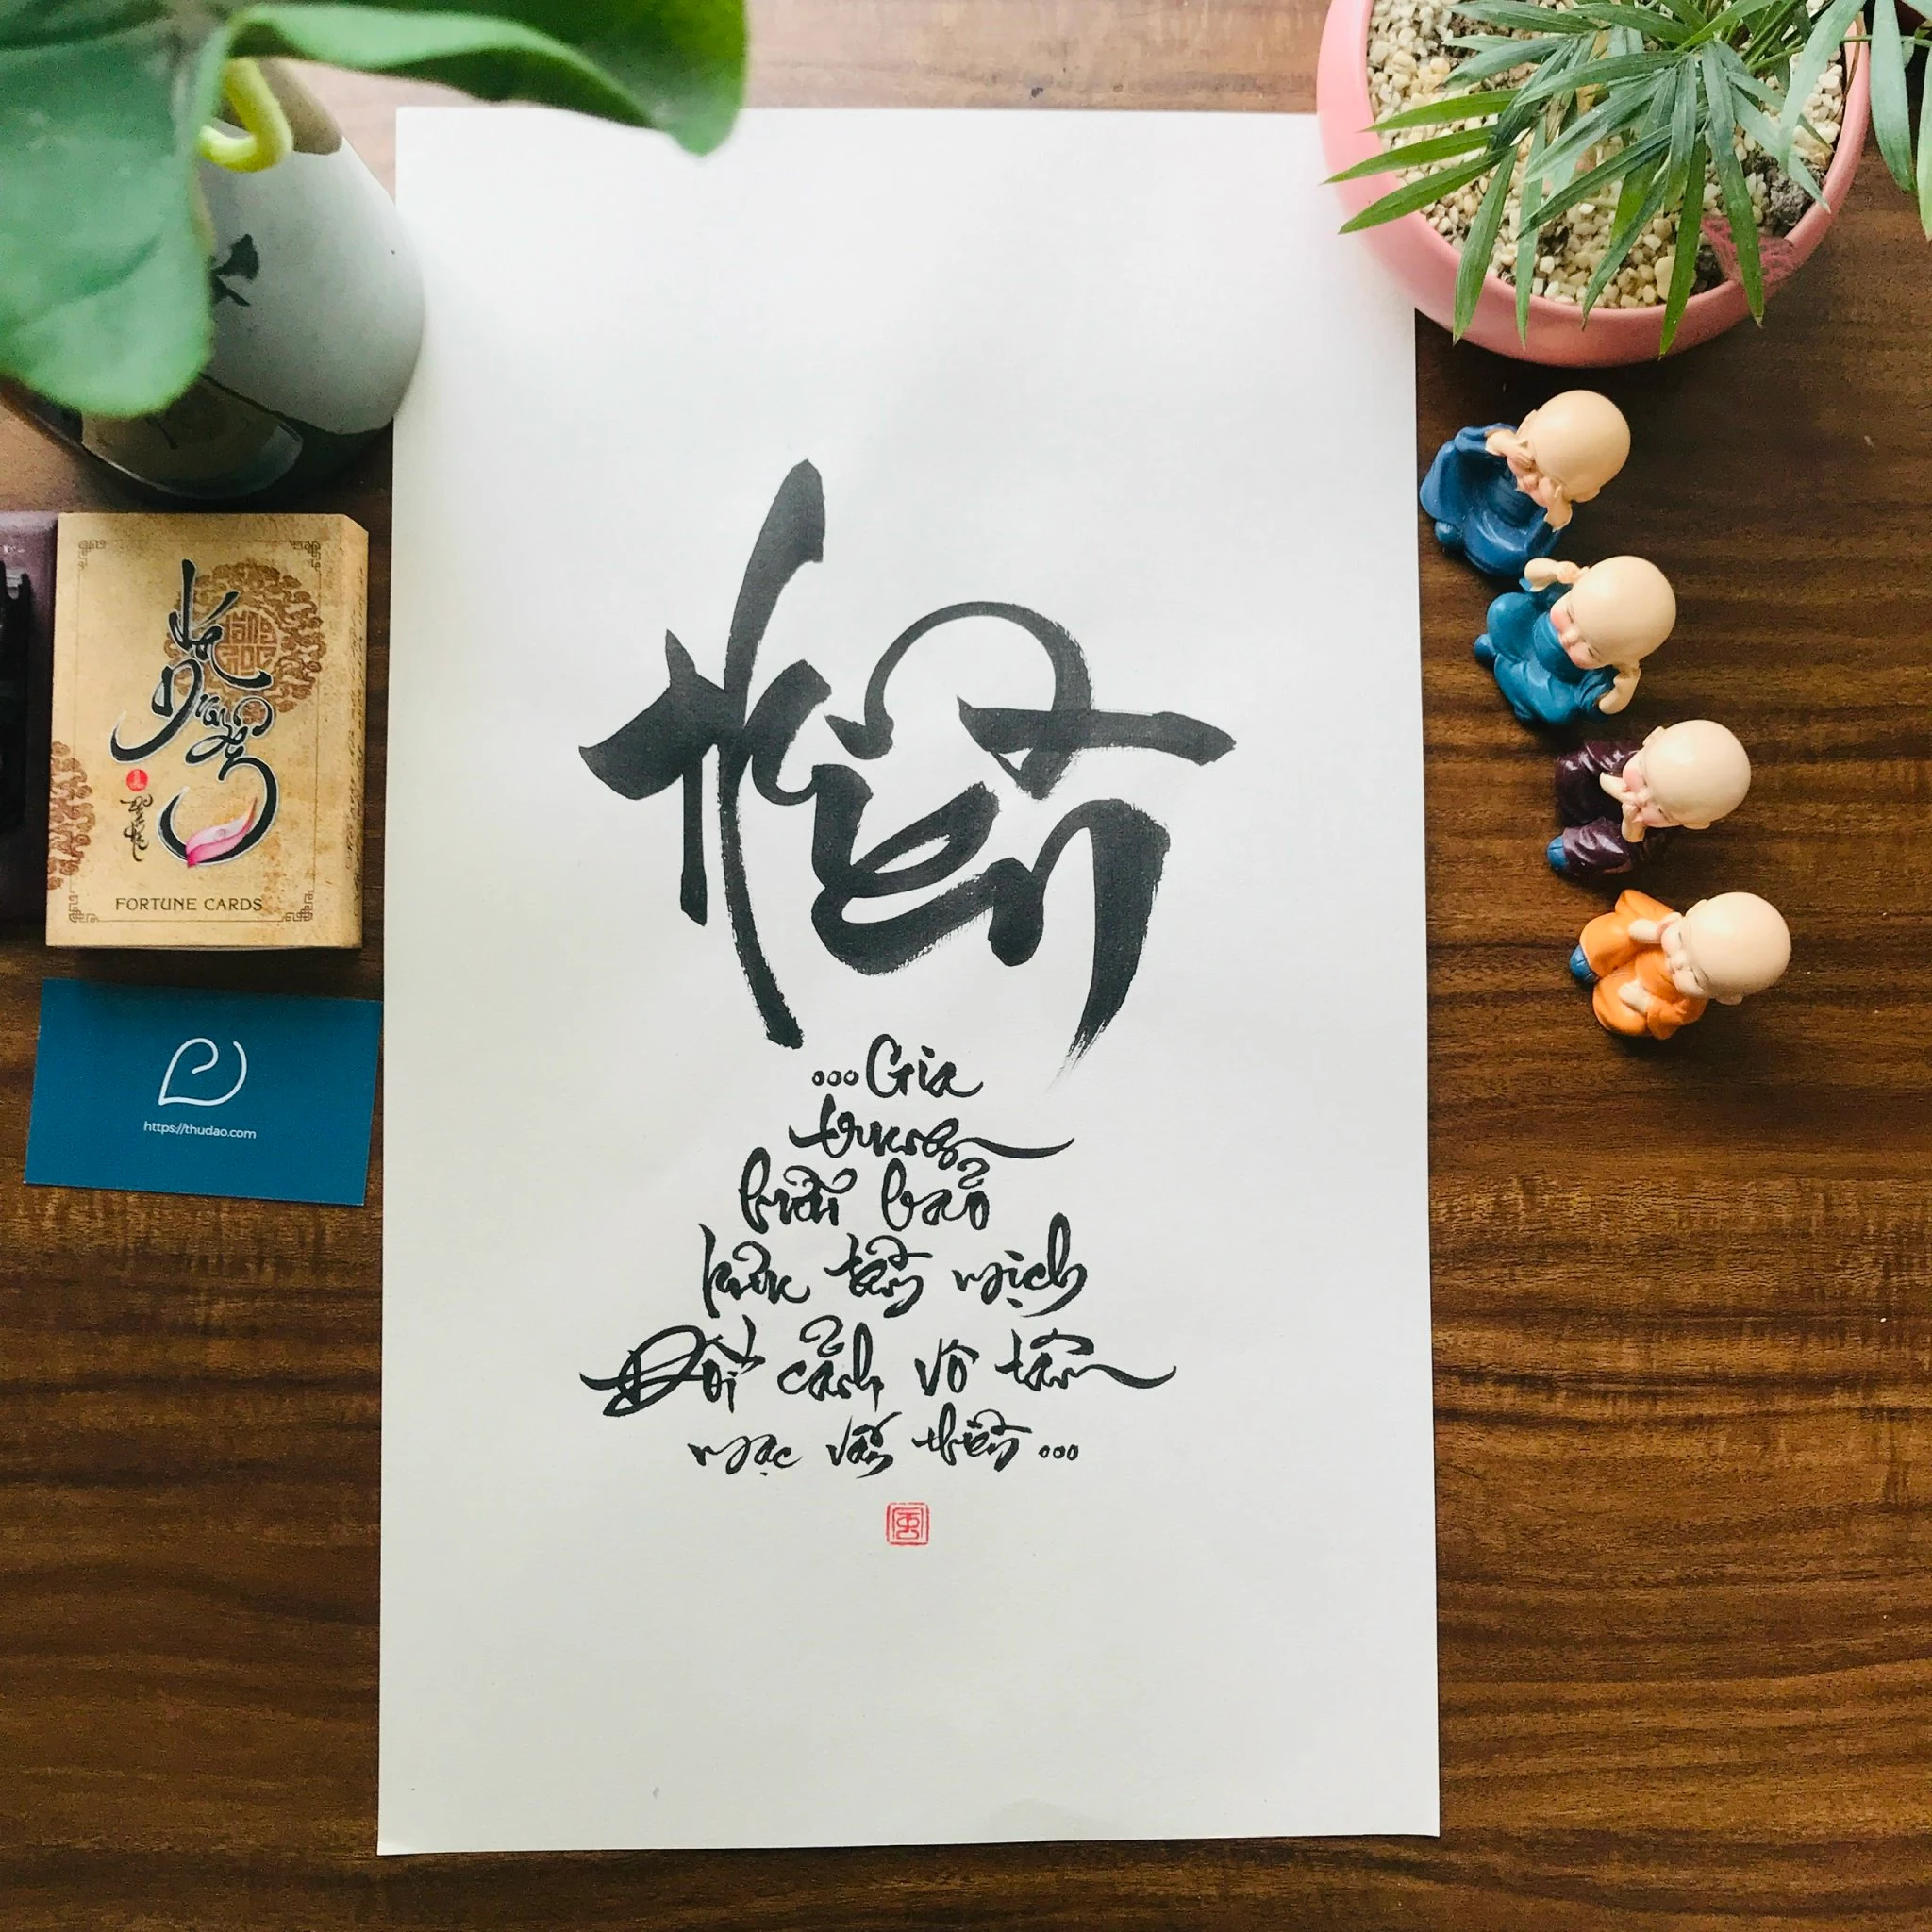 Thiền
...Gia
trung
hữu bảo
hưu tầm mịch
Đối cảnh vô tâm
mạc vấn thiền...
Vô
Thường
FORTUNE CARDS
https://thudao.com